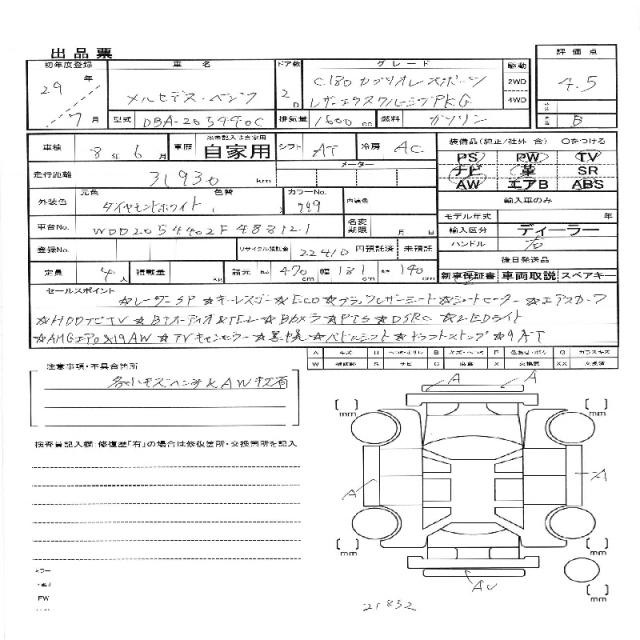 出品票
初年度登録 車名 ドア数 グレード 駆動 評価点
29年 メルセデス・ベンツ 2D C180 カブリオレスポーツ 2WD 4.5
レザーエクスクルーシブPKG 4WD
7月 型式 DBA-205440C 排気量 1600cc 燃料 ガソリン B
車検 8年6月 車歴 自家用 シフト AT 冷房 AC 装備品(純正/社外 含) ○をつける
メーター PS PW TV
走行距離 31930 km ナビ 革 SR
元色 色替 カラーNo. AW エアB ABS
外装色 ダイヤモンドホワイト 799 内装色 輸入車のみ
モデル年式 年
車台No. WDD2054402F488121 名変期限 月 日 輸入区分 ディーラー
登録No. リサイクル預託金 22410 円預託済 未預託 ハンドル 右
後日発送品
定員 4人 積載量 Kg 諸元 No 470cm 幅 181cm 高 140cm 新車保証書 車両取説 スペアキー
セールスポイント
☆レーザーSP ☆キーレスゴー ☆ECO ☆ブラックレザーシート ☆シートヒーター ☆エアスカーフ
☆HDDナビTV ☆BTオーディオ&TEL ☆Bカメラ ☆PTS ☆DSRC ☆LEDライト
☆AMGエアロ&19AW ☆TVキャンセラー ☆黒幌 ☆パドルシフト ☆ドラフトストップ ☆9AT
注意事項・不具合箇所
検査員記入欄:修復歴「有」の場合は修復箇所・交換箇所を記入
A
A
mm mm
A
A
mm mm
AU
mm
21832